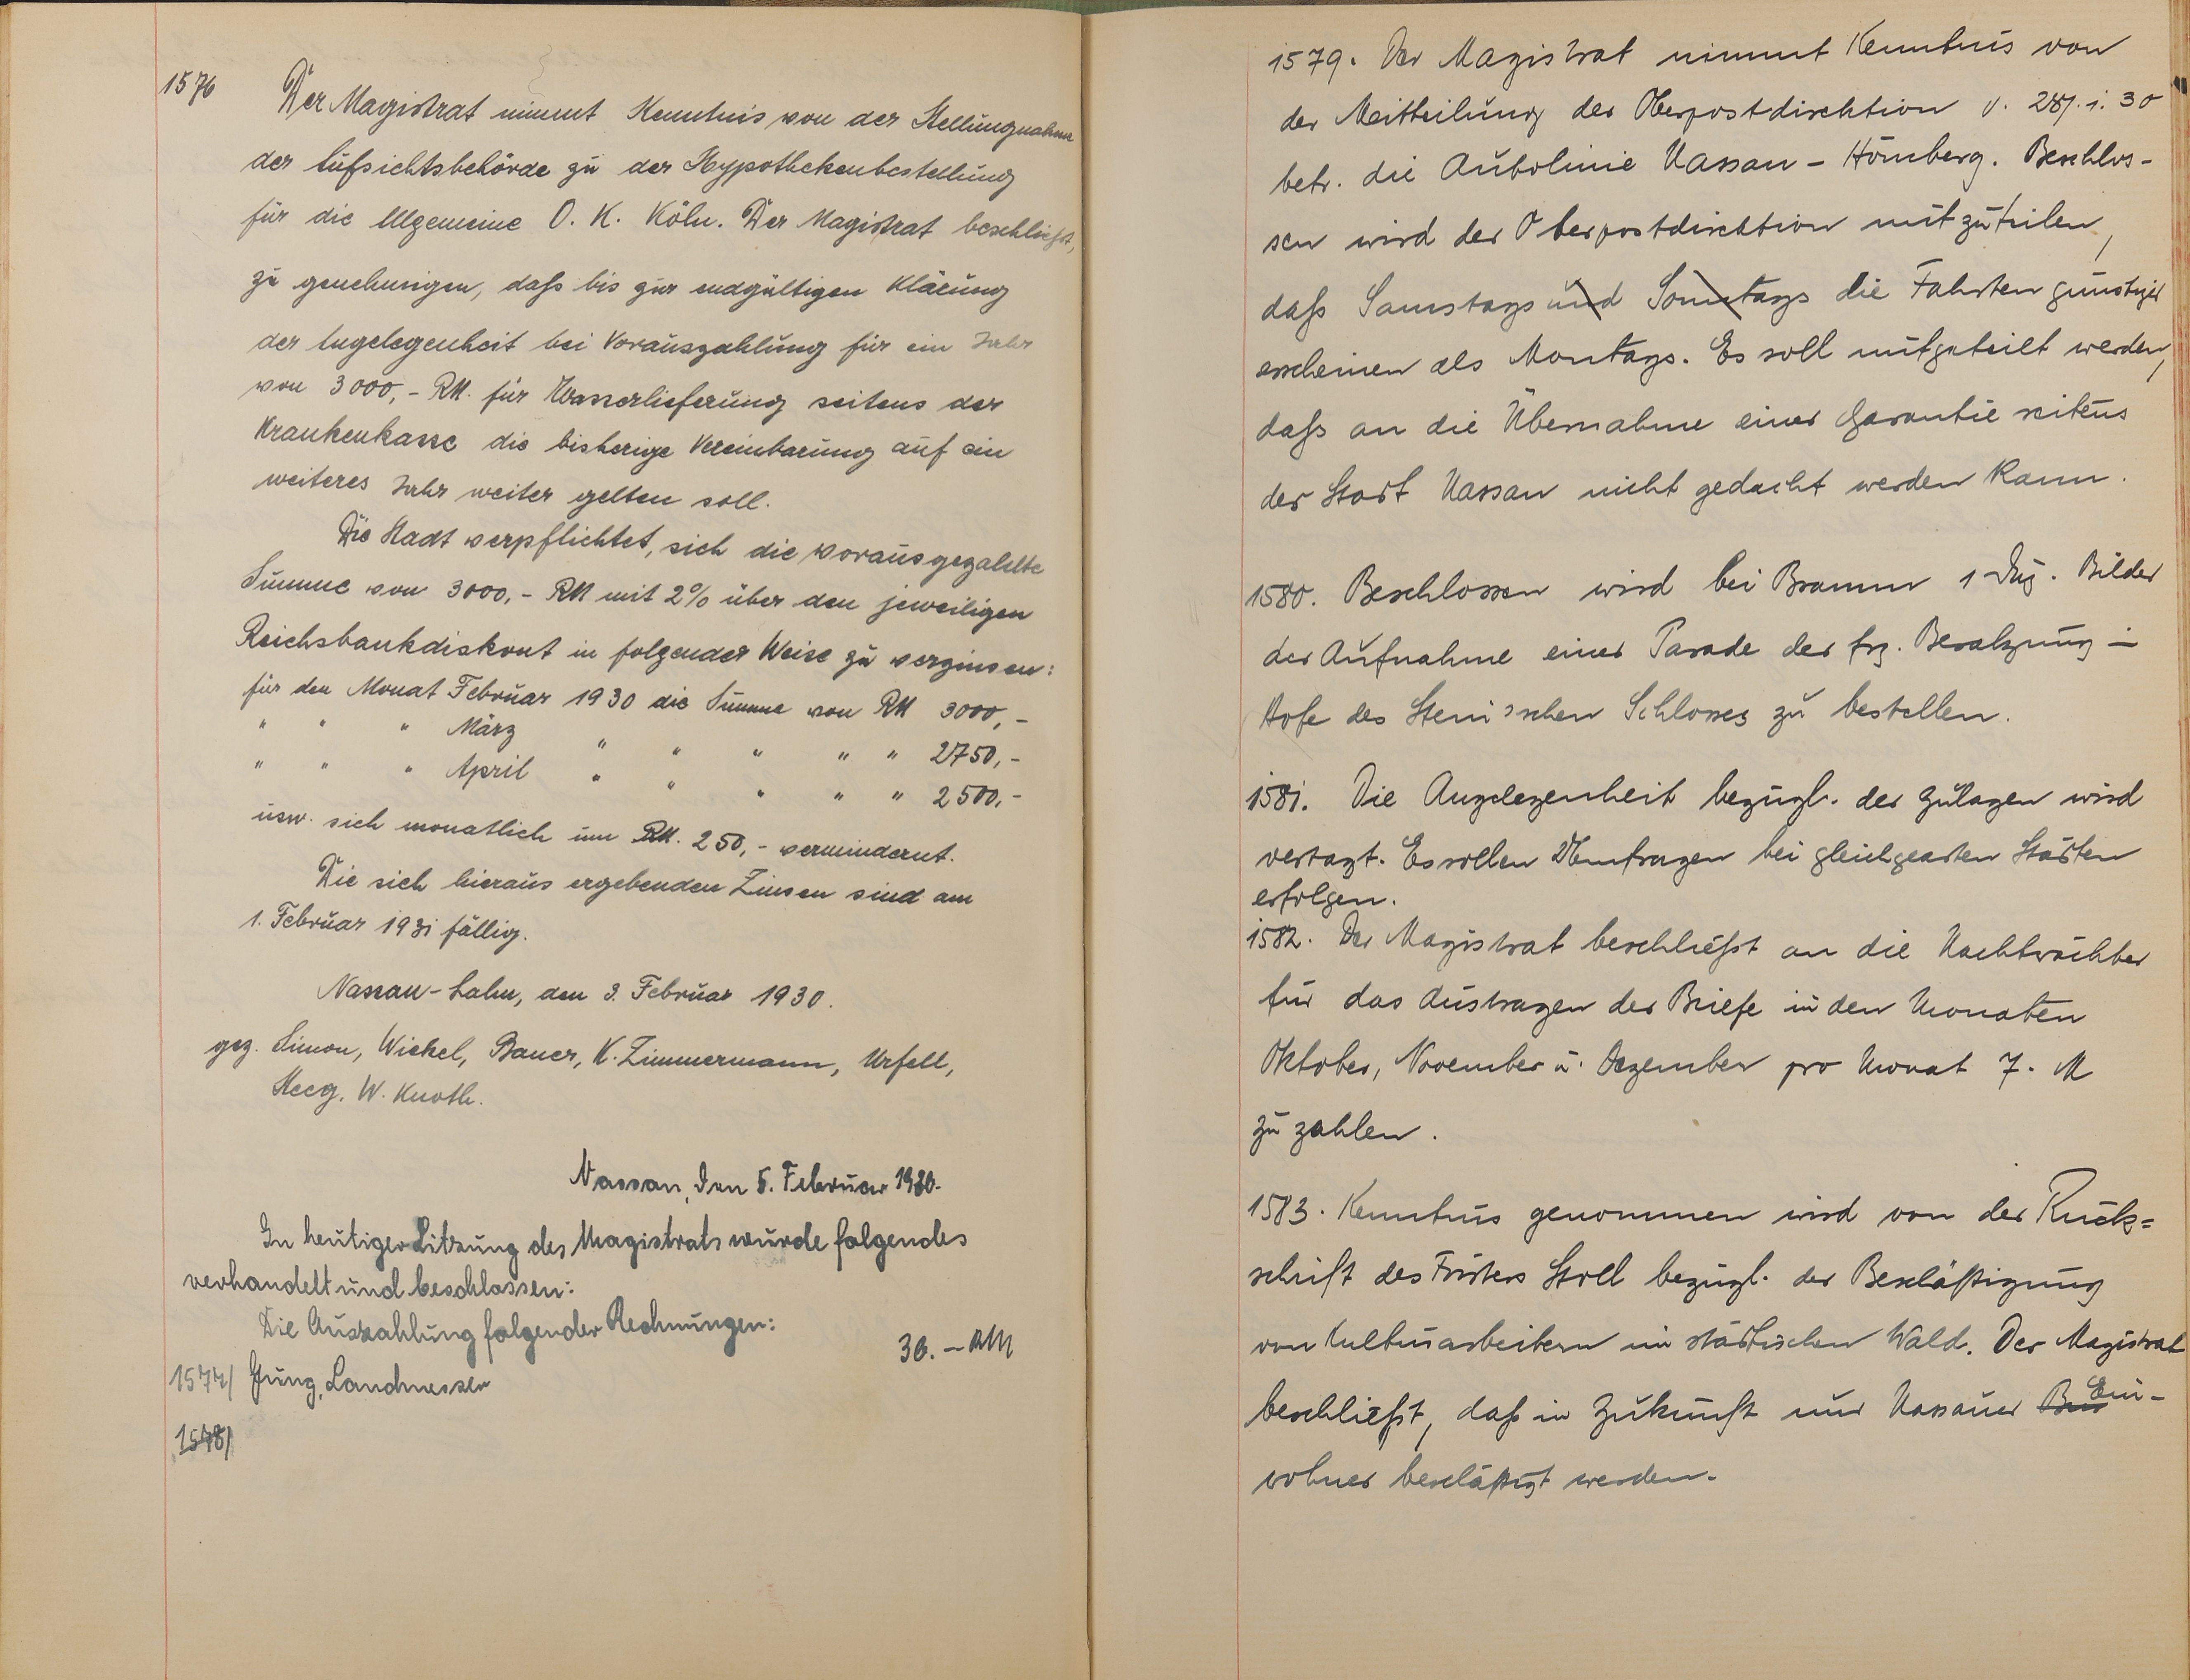 1576 Der Magistrat nimmt Kenntnis von der Stellungnahme
der Aufsichtsbehörde zu der Hypothekenbestellung
für die Allgemeine O. K. Köln. Der Magistrat beschließt,
zu genehmigen, daß bis zur endgültigen Klärung
der Angelegenheit bei Vorauszahlung für ein Jahr
von 3000,- RM. für Wasserlieferung seitens der
Krankenkasse die bisherige Vereinbarung auf ein
weiteres Jahr weiter gelten soll.
Die Stadt verpflichtet, sich die vorausgezahlte
Summe von 3000,- RM mit 2% über den jeweiligen
Reichsbankdiskont in folgender Weise zu verzinsen:
für den Monat Februar 1930 die Summe von RM 3000,-
" " " März " " " " " 2750,-
" " " April " " " " " 2500,-
usw. sich monatlich um RM. 250,- vermindernt.
Die sich hieraus ergebenden Zinsen sind am
1. Februar 1931 fällig.
Nassau-Lahn, den 3. Februar 1930.
gez. Simon, Wickel, Bauer, K. Zimmermann, Urfell,
Heeg, W. Knoth.
Nassau, den 5. Februar 1930.
In heutiger Sitzung des Magistrats wurde folgendes
verhandelt und beschlossen:
Die Auszahlung folgender Rechnungen:
1577/ Jung, Landmesser 36.- RM
1578/
1579. Der Magistrat nimmt Kenntnis von
der Meitteilung der Oberpostdirektion v. 28/.1.30
betr. die Autolinie Nassau - Hömberg. Beschlos-
sen wird der Oberpostdirektion mitzuteilen,
daß Samstags und Sonntags die Fahrten günstiger
erscheinen als Montags. Es soll mitgeteilt werden,
daß an die Übernahme einer Garantie seitens
der Stadt Nassau nicht gedacht werden kann.
1580. Beschlossen wird bei Bramm 1 Dtz. Bilder
der Aufnahme einer Parade der frz. Besatzung i
Hofe des Stein'schen Schlosses zu bestellen.
1581. Die Angelegenheit bezügl. der Zulagen wird
vertagt. Es sollen Umfragen bei gleichgearten Städten
erfolgen.
1582. Der Magistrat beschließt an die Nachtwächter
für das Austragen der Briefe in den Monaten
Oktober, November u. Dezember pro Monat 7. M
zu zahlen.
1583. Kenntnis genommen wird von der Rück=
schrift des Försters Stoll bezügl. der Beschäftigung
von Kulturarbeitern im städtischen Wald. Der Magistrat
beschließt, daß in Zukunft nur Nassauer Ein-
wohner beschäftigt werden.